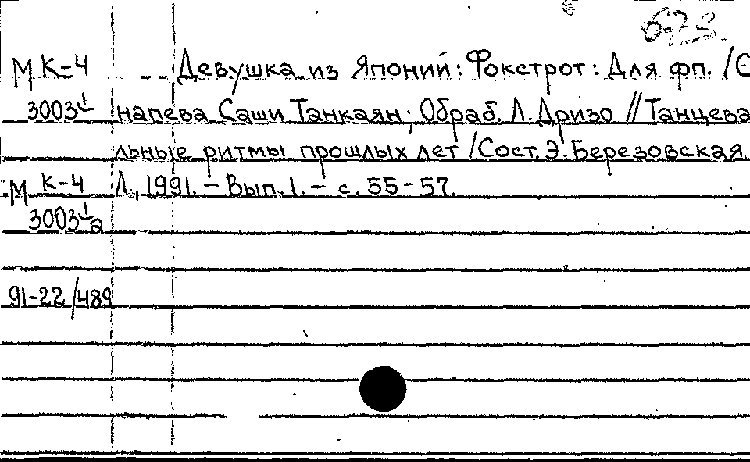 623.
М К-4 Девушка из Японии: Фокстрот: Для фп. /С
3003 1/ напева Саши Танкаян; Обраб. Л. Дризо // Танцева
льные ритмы прошлых лет / Сост. Э. Березовская.
М К-4 Л., 1991. – Вып. 1. – с. 55-57.
3003 1/а
91-22/489